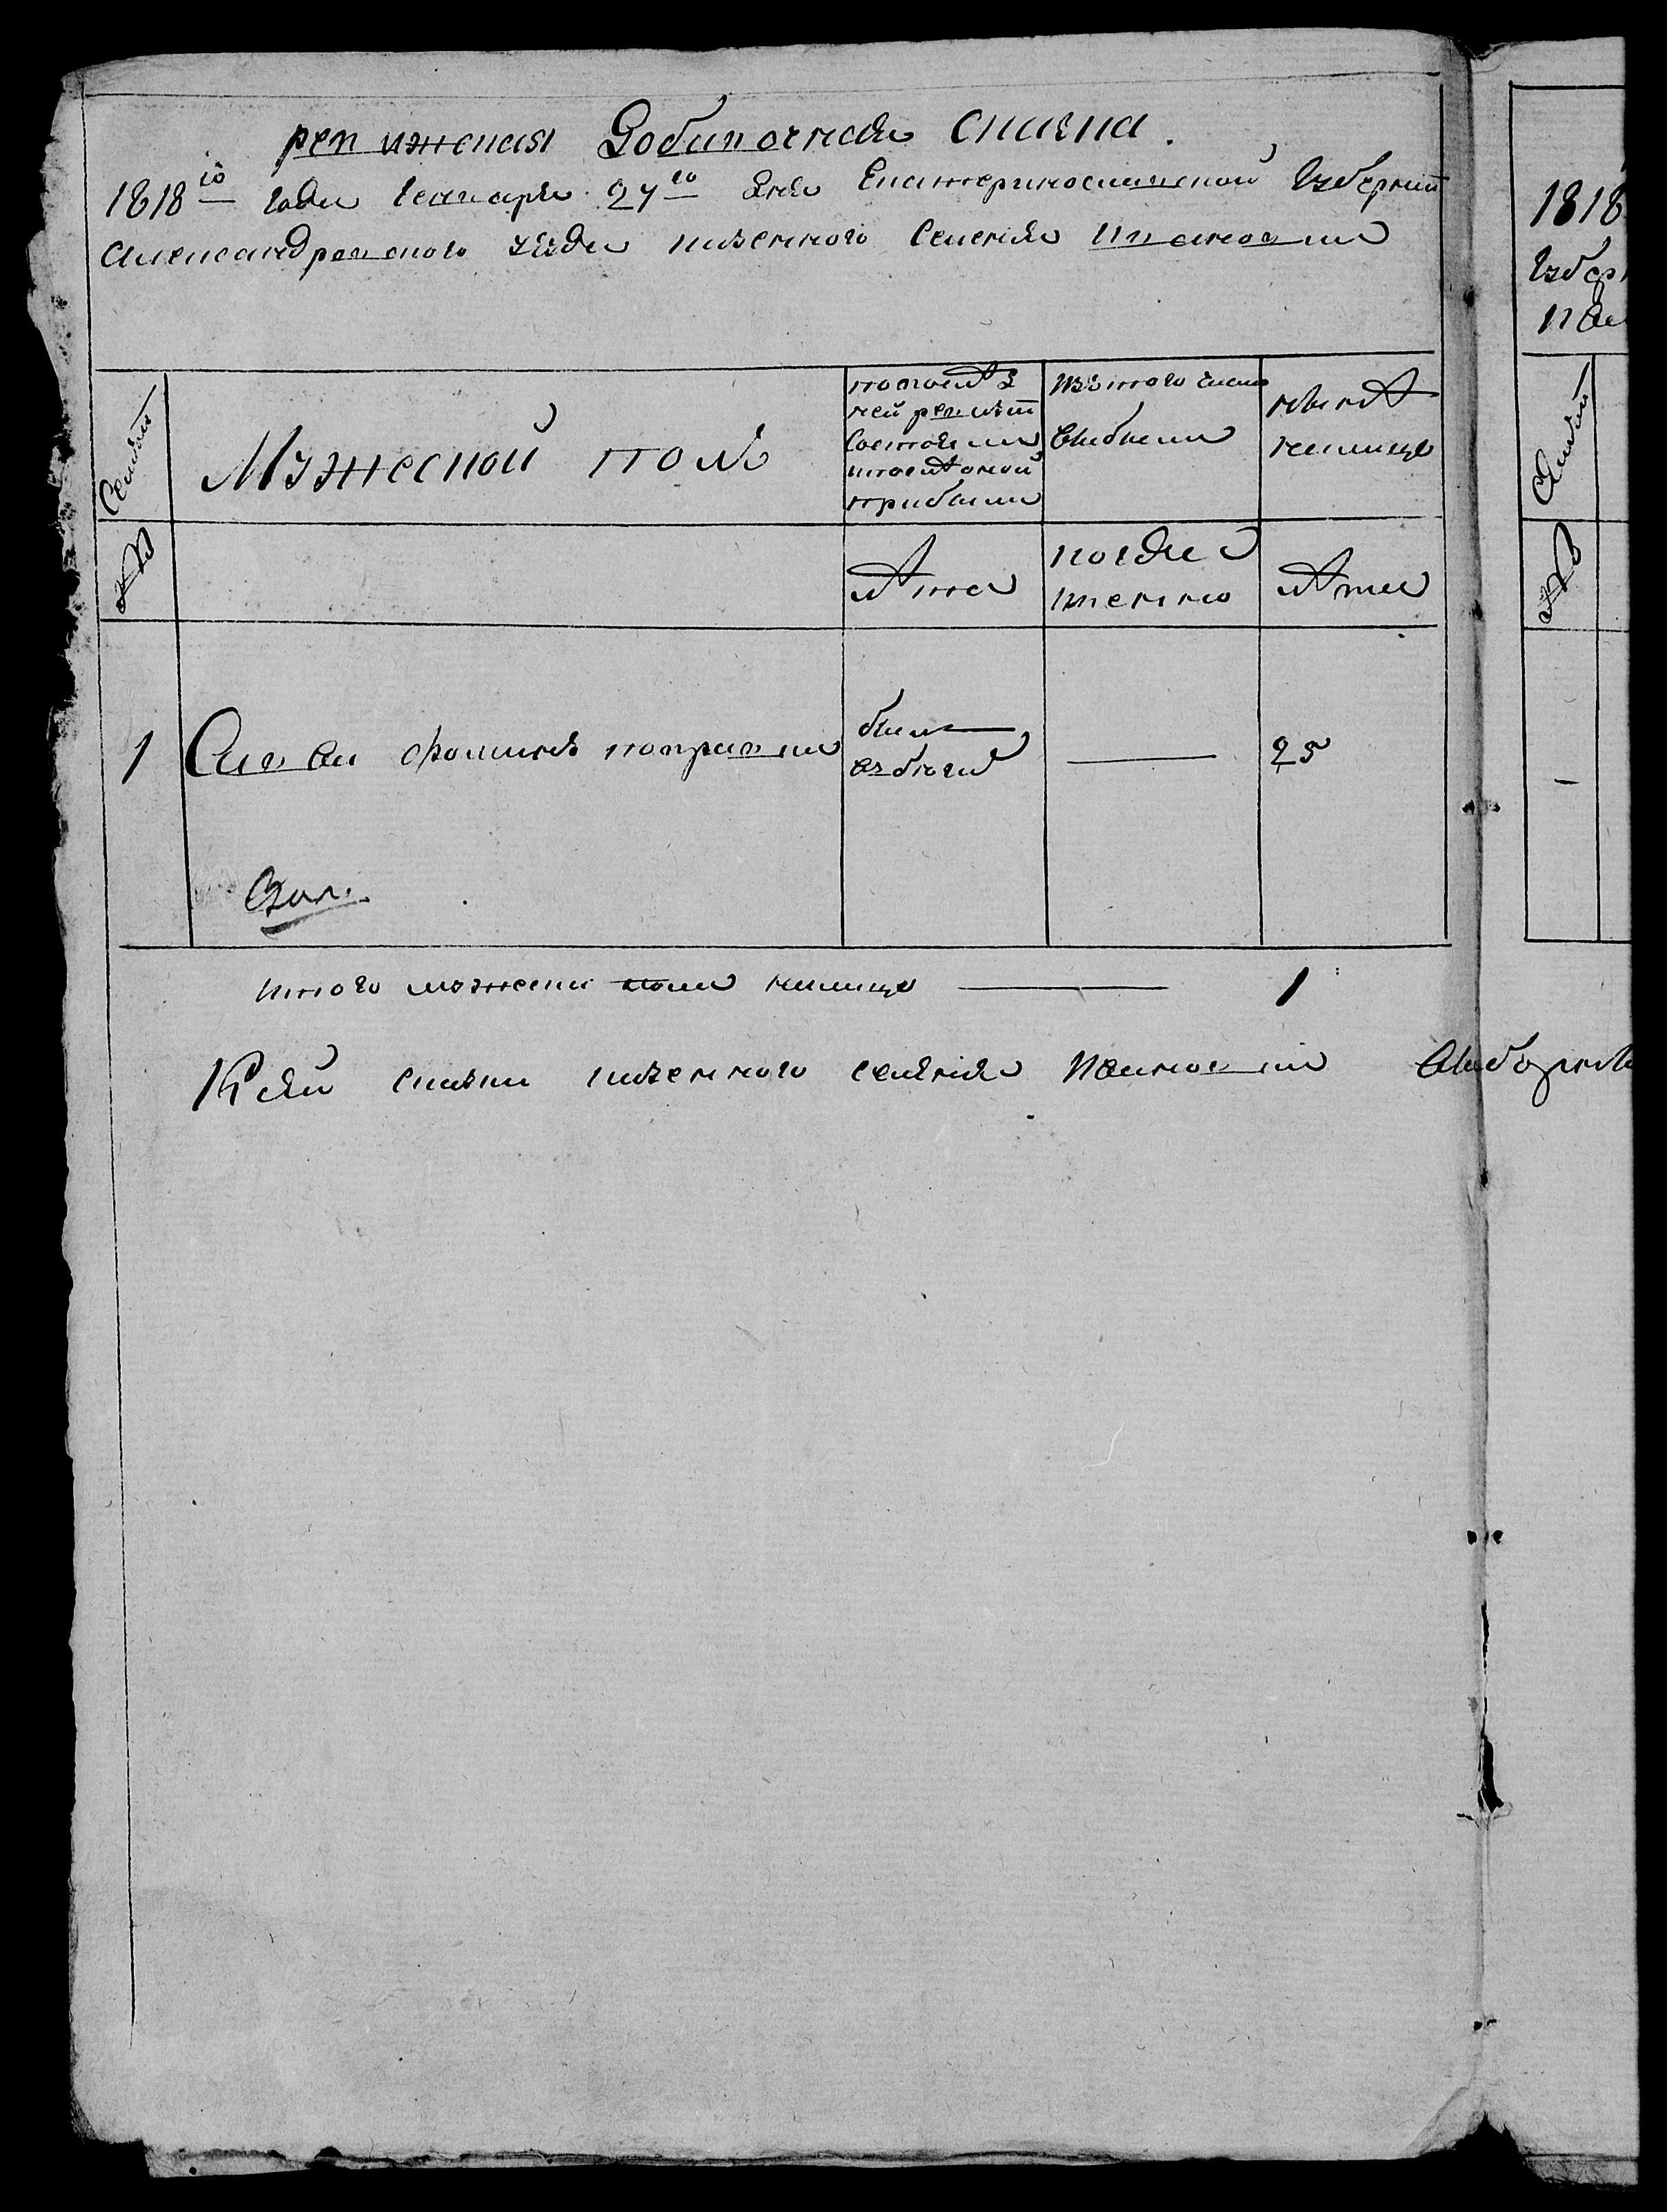 ревижская Добавочная сказка.
1818го года Генваря 27го дня Екатеринославской Губернии
Александровского уезда казенного Селения Ивановки
Семьи
Мужеской полъ
по последней ревизии состояли и после оной прибыли
Изъ того числа выбыли
ныне на лицо
№
Лета
когда именно
Лета
1
Савва Фоминъ
былъ в бегах
25
Итого мужеска пола на лицо 1
К сей сказки казенного селения Ивановки Выборный
1818
Губер
Семьи
№